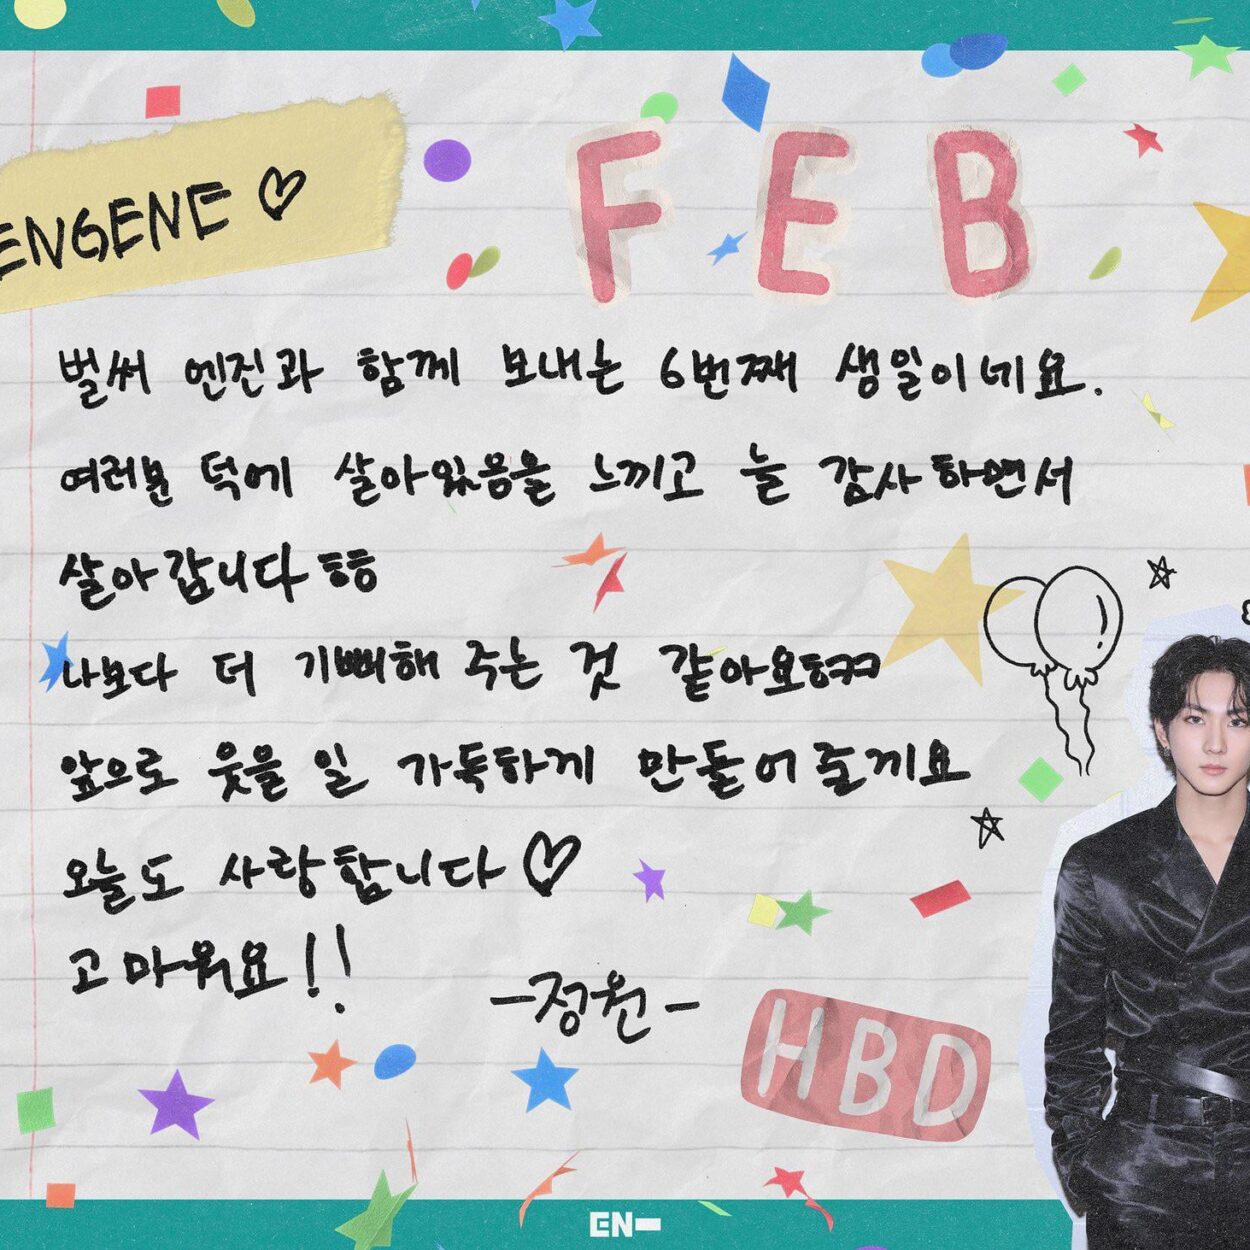 ENGENE ♡
FEB
벌써 엔진과 함께 보내는 6번째 생일이네요.
여러분 덕에 살아있음을 느끼고 늘 감사하면서
살아갑니다ㅎㅎ
나보다 더 기뻐해 주는 것 같아요ㅎㅋㅋ
앞으로 웃을 일 가득하게 만들어줄게요
오늘도 사랑합니다♡
고마워요!!
-정원-
HBD
EN-